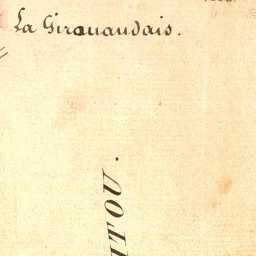 La Girauaudais.
ITOU.